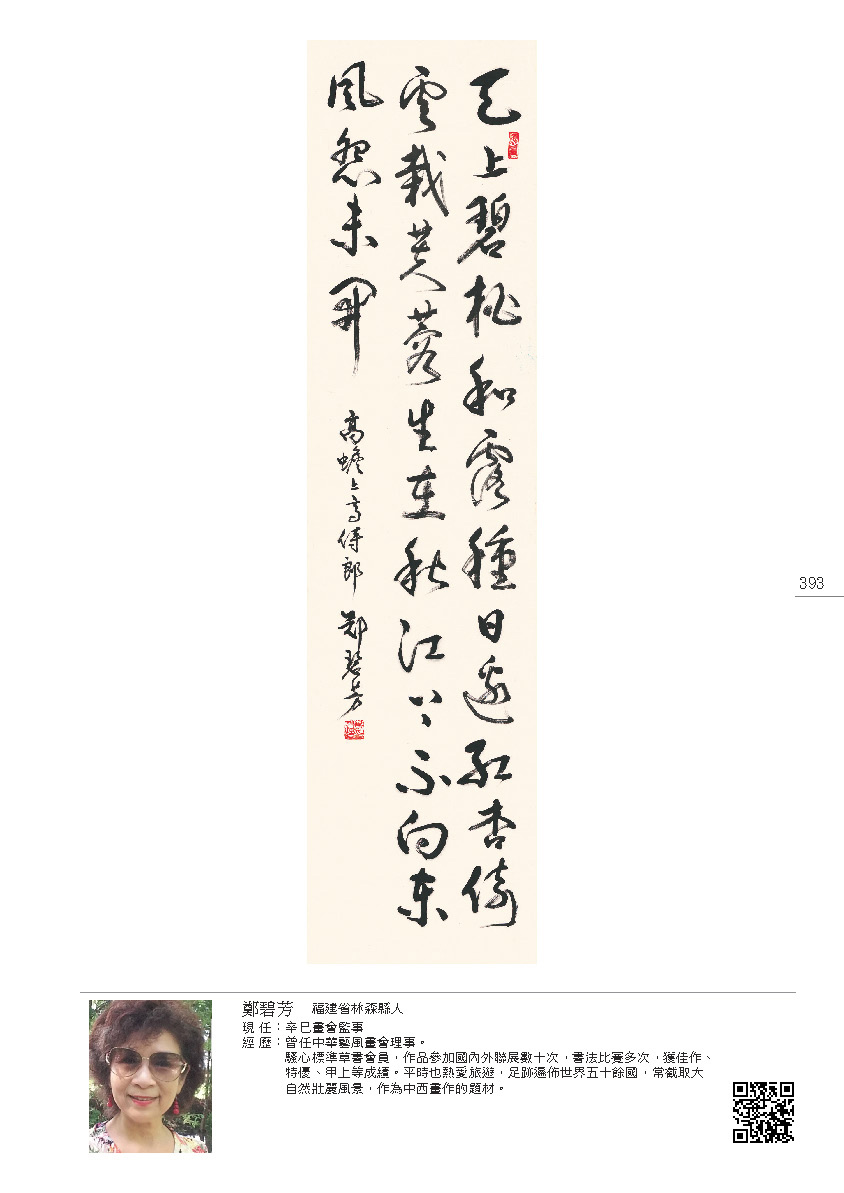 天上碧桃和露種日邊紅杏倚
雲栽芙蓉生在秋江上不向東
風怨未開
高蟾上高侍郎 鄭碧芳
393
鄭碧芳 福建省林森縣人
現 任：辛巳畫會監事
經 歷：曾任中華藝風畫會理事。
驫心標準草書會員，作品參加國內外聯展數十次，書法比賽多次，獲佳作、
特優、甲上等成績。平時也熱愛旅遊，足跡遍佈世界五十餘國，常截取大
自然壯麗風景，作為中西畫作的題材。